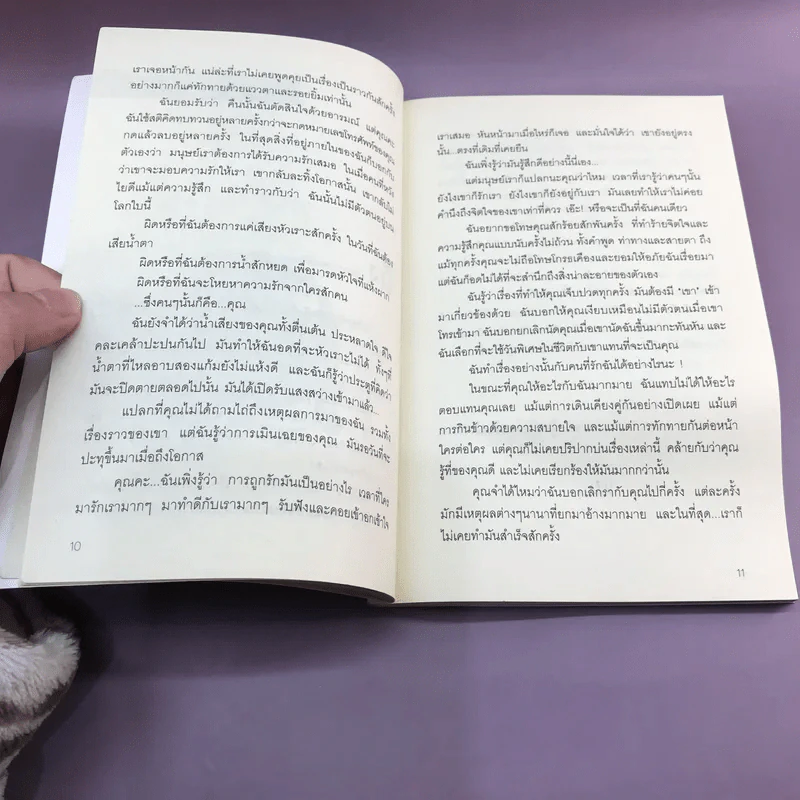 เราเจอหน้ากัน แน่ล่ะที่เราไม่เคยพูดคุยเป็นเรื่องเป็นราวกันสักครั้ง
อย่างมากก็แค่ทักทายด้วยแววตาและรอยยิ้มเท่านั้น
ฉันยอมรับว่า คืนนั้นฉันตัดสินใจด้วยอารมณ์ แต่คุณคะ
ฉันใช้สติคิดทบทวนอยู่หลายครั้งกว่าจะกดหมายเลขโทรศัพท์ของคุณ
กดแล้วลบอยู่หลายครั้ง ในที่สุดสิ่งที่อยู่ภายในของฉันก็บอกกับ
ตัวเองว่า มนุษย์เราต้องการได้รับความรักเสมอ ในเมื่อคนที่หวัง
ว่าเขาจะมอบความรักให้เรา เขากลับละทิ้งโอกาสนั้น เขากลับไม่
ใยดีแม้แต่ความรู้สึก และทำราวกับว่า ฉันนั้นไม่มีตัวตนอยู่บน
โลกใบนี้
ผิดหรือที่ฉันต้องการแค่เสียงหัวเราะสักครั้ง ในวันที่ฉันต้อง
เสียน้ำตา
ผิดหรือที่ฉันต้องการน้ำสักหยด เพื่อมารดหัวใจที่แห้งผาก
ผิดหรือที่ฉันจะโหยหาความรักจากใครสักคน
...ซึ่งคนๆนั้นก็คือ...คุณ
ฉันยังจำได้ว่าน้ำเสียงของคุณทั้งตื่นเต้น ประหลาดใจ ดีใจ
คละเคล้าปะปนกันไป มันทำให้ฉันอดที่จะหัวเราะไม่ได้ ทั้งๆที่
น้ำตาที่ไหลอาบสองแก้มยังไม่แห้งดี และฉันก็รู้ว่าประตูที่คิดว่า
มันจะปิดตายตลอดไปนั้น มันได้เปิดรับแสงสว่างเข้ามาแล้ว...
แปลกที่คุณไม่ได้ถามไถ่ถึงเหตุผลการมาของฉัน รวมทั้ง
เรื่องราวของเขา แต่ฉันรู้ว่าการเมินเฉยของคุณ มันรอวันที่จะ
ปะทุขึ้นมาเมื่อถึงโอกาส
คุณคะ...ฉันเพิ่งรู้ว่า การถูกรักมันเป็นอย่างไร เวลาที่ใคร
มารักเรามากๆ มาทำดีกับเรามากๆ รับฟังและคอยเข้าอกเข้าใจ
10
เราเสมอ หันหน้ามาเมื่อไหร่ก็เจอ และมั่นใจได้ว่า เขายังอยู่ตรง
นั้น...ตรงที่เดิมที่เคยยืน
ฉันเพิ่งรู้ว่ามันรู้สึกดีอย่างนี้นี่เอง...
แต่มนุษย์เราก็แปลกนะคุณว่าไหม เวลาที่เรารู้ว่าคนๆนั้น
ยังไงเขาก็รักเรา ยังไงเขาก็ยังอยู่กับเรา มันเลยทำให้เราไม่ค่อย
คำนึงถึงจิตใจของเขาเท่าที่ควร เอ๊ะ! หรือจะเป็นที่ฉันคนเดียว
ฉันอยากขอโทษคุณสักร้อยสักพันครั้ง ที่ทำร้ายจิตใจและ
ความรู้สึกคุณแบบนับครั้งไม่ถ้วน ทั้งคำพูด ท่าทางและสายตา ถึง
แม้ทุกครั้งคุณจะไม่ถือโทษโกรธเคืองและยอมให้อภัยฉันเรื่อยมา
แต่ฉันก็อดไม่ได้ที่จะสำนึกถึงสิ่งน่าละอายของตัวเอง
ฉันรู้ว่าเรื่องที่ทำให้คุณเจ็บปวดทุกครั้ง มันต้องมี "เขา" เข้า
มาเกี่ยวข้องด้วย ฉันบอกให้คุณเงียบเหมือนไม่มีตัวตนเมื่อเขา
โทรเข้ามา ฉันบอกยกเลิกนัดคุณเมื่อเขานัดฉันขึ้นมากะทันหัน และ
ฉันเลือกที่จะใช้วันพิเศษในชีวิตกับเขาแทนที่จะเป็นคุณ
ฉันทำเรื่องอย่างนั้นกับคนที่รักฉันได้อย่างไรนะ !
ในขณะที่คุณให้อะไรกับฉันมากมาย ฉันแทบไม่ได้ให้อะไร
ตอบแทนคุณเลย แม้แต่การเดินเคียงคู่กันอย่างเปิดเผย แม้แต่
การกินข้าวด้วยความสบายใจ และแม้แต่การทักทายกันต่อหน้า
ใครต่อใคร แต่คุณก็ไม่เคยปริปากบ่นเรื่องเหล่านี้ คล้ายกับว่าคุณ
รู้ที่ของคุณดี และไม่เคยเรียกร้องให้มันมากกว่านั้น
คุณจำได้ไหมว่าฉันบอกเลิกรากับคุณไปกี่ครั้ง แต่ละครั้ง
มักมีเหตุผลต่างๆนานาที่ยกมาอ้างมากมาย และในที่สุด...เราก็
ไม่เคยทำมันสำเร็จสักครั้ง
11